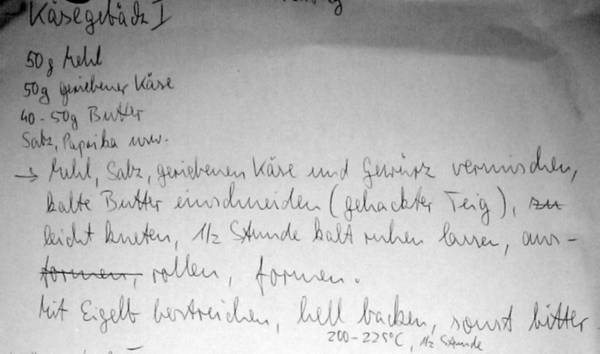 Käsegebäck I
50g Mehl
50g geriebener Käse
40-50g Butter
Salz, Paprika usw.
→ Mehl, Salz, geriebenen Käse und Gewürz vermischen,
kalte Butter einschneiden (gehackter Teig), zu
leicht kneten, 1/2 Stunde kalt ruhen lassen, aus-
formen, rollen, formen.
Mit Eigelb bestreichen, hell backen, sonst bitter
200-225°C, 1/2 Stunde